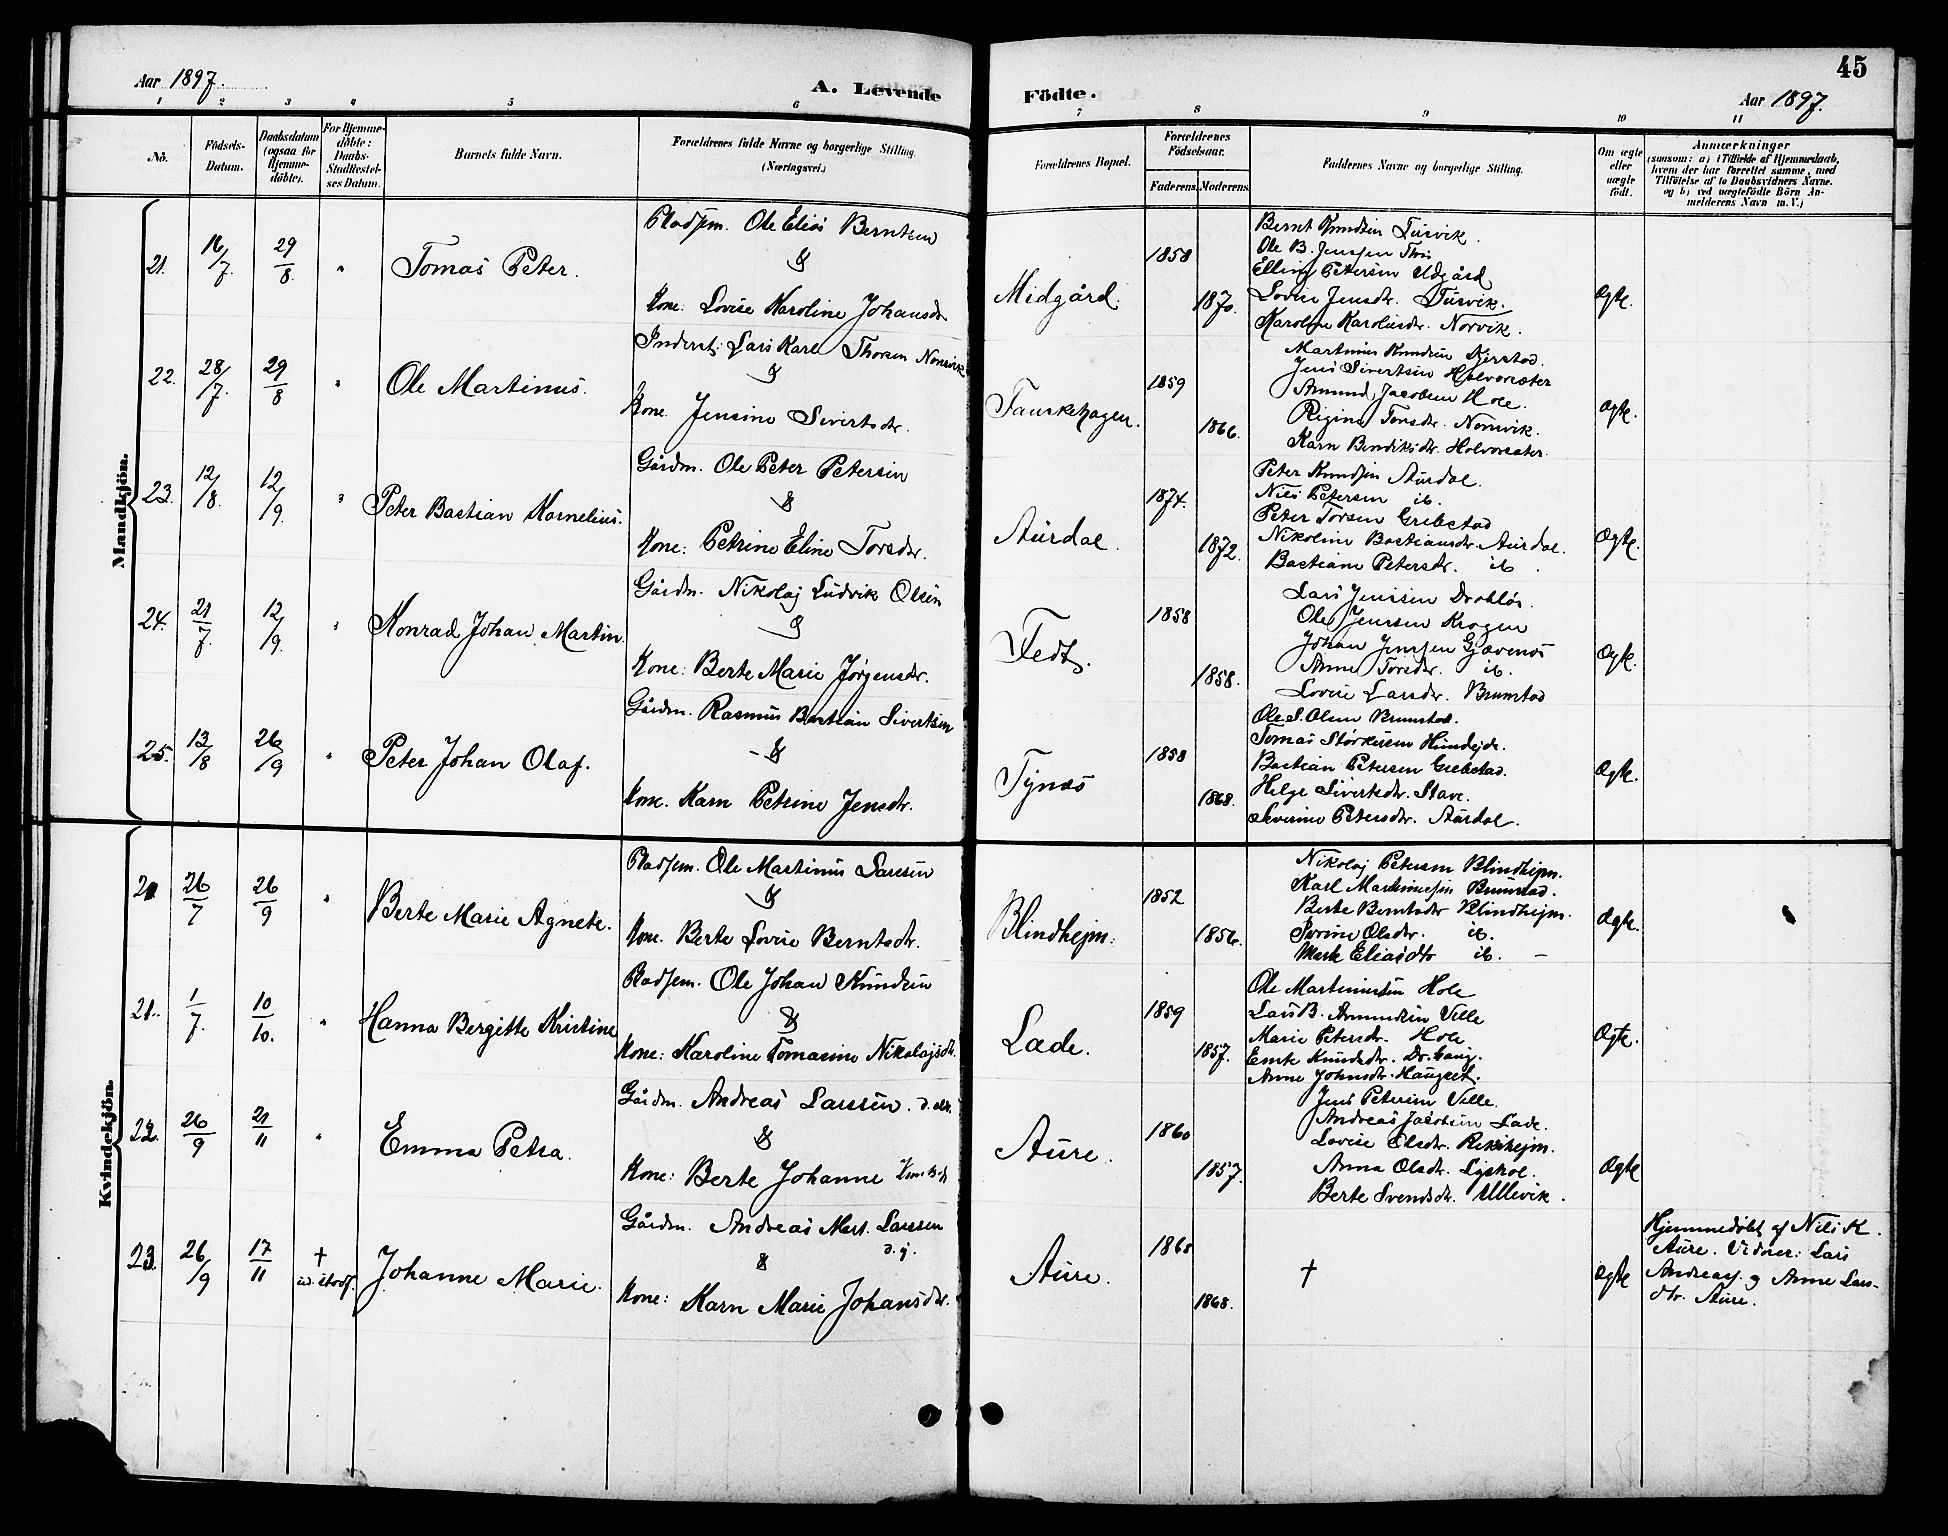 45
Aar 1897. A. Levende Födte. Aar 1897.
1 2 3 4 5 6 7 8 9 10 11
No. Födsels-Datum. Daabsdatum (ogsaa for Hjemme-döbte). For Hjemme-döbte: Daabs-Stadfæstel-ses Datum. Barnets fulde Navn. Forældrenes fulde Navne og borgerlige Stilling. (Næringsvei.) Forældrenes Bopæl. Forældrenes Födselsaar. Faderens. Moderens. Faddernes Navne og borgerlige Stilling. Om ægte eller uægte födt. Anmærkninger (saasom: a) i Tilfælde af Hjemmedaab, hvem der har forrettet samme, med Tilföielse af to Daabsvidners Navne. og b) ved uægtefödte Börn An-melderens Navn m. V.)
Mandkjön.
21. 16/7. 29/8. " Tomas Peter.
Pladsm. Ole Elias Berntsen
&
Kone: Lovise Karoline Johansdr.
Midgård. 1858 1870.
Bernt Knudsen Tusvik.
Ole B. Jenssen
Elling Petersen Udgård
Lovise Jensdr. Tusvik.
Karoline Karolusdr. Norvik.
Ægte.
22. 28/7. 29/8 " Ole Martinus.
Inderst: Lars Karl Thorsen
&
Kone. Jensine Sivertsdr.
Fauskehagen. 1859 1866.
Martinus Knudsen
Jens Sivertsen
Amund Jacobsen Hole.
Regine Torsdr.
Karn Bendiksdr.
Ægte.
23. 12/8. 12/9. " Peter Bastian Kornelius.
Gårdm. Ole Peter Petersen
&
Kone: Petrine Eline Torsdr.
Aurdal. 1874. 1872.
Peter Knudsen Aurdal.
Nils Petersen ib.
Peter Torsen Grebstad
Nikoline Bastiansdr. Aurdal.
Bastiane Petersdr. ib.
Ægte.
24. 21/7. 12/9. " Konrad Johan Martin.
Gårdm. Nikolaj Ludvik Olsen
&
Kone: Berte Marie Jørgensdr.
Fedt. 1858 1858.
Lars Jenssen Drabløs.
Ole Jenssen Krogen
Johan Jenssen Gjævenæs
Anne Torsdr. ib.
Lovise Larsdr. Brunstad
Ægte.
25. 13/8 26/9 " Peter Johan Olaf.
Gårdm. Rasmus Bastian Sivertsen
&
Kone. Karn Petrine Jensdr.
Tynæs 1858 1868.
Ole S. Olsen Brunstad.
Tomas Størkersen
Bastian Petersen Grebstad.
Helge Sivertsdr. Stave.
Petersdr. Aurdal.
Ægte.
Kvindekjön.
26/7 26/9 " Berte Marie Agnete.
Pladsm. Ole Martinus Larsen
&
Kone. Berte Lovise Berntsdr.
Blindhejm. 1852 1856.
Nikolaj Petersen Blindhejm.
Karl Martinussen Brunstad.
Berte Berntsdr Blindhejm.
Serine Olsdr. ib.
Eliasdtr ib.
Ægte.
21. 1/7. 10/10. " Hanna Bergitte Kristine
Pladsm. Ole Johan Knudsen
&
Kone: Karoline Tomasine Nikolajsdr.
Lade. 1859 1857.
Ole Martinussen Hole
Lars B. Amundsen Ville
Marie Petersdr. Hole
Knudsdr.
Anne Johnsdr. Haugset.
Ægte.
22. 26/9 21/11 " Emma Petra.
Gårdm. Andreas Larsen. d. eldr.
&
Kone: Berte Johanne
Aure. 1860 1857.
Jens Petersen Ville.
Andreas Jacobsen Lade.
Lovise Olsdr.
Anna Olsdr.
Berte Svendsdr. Ullevik.
Ægte
23. 26/9 17/11 † Johanne Marie.
Gårdm. Andreas Mart. Larsen
d. y.
&
Kone: Karn Marie Johansdr.
Aure. 1868.
†
Ægte
Hjemmedøbt af Nils K.
Aure. Vidner: Lars
Andreas. og Anne Lars-
dtr. Aure.